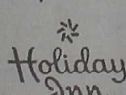 Holiday
Inn